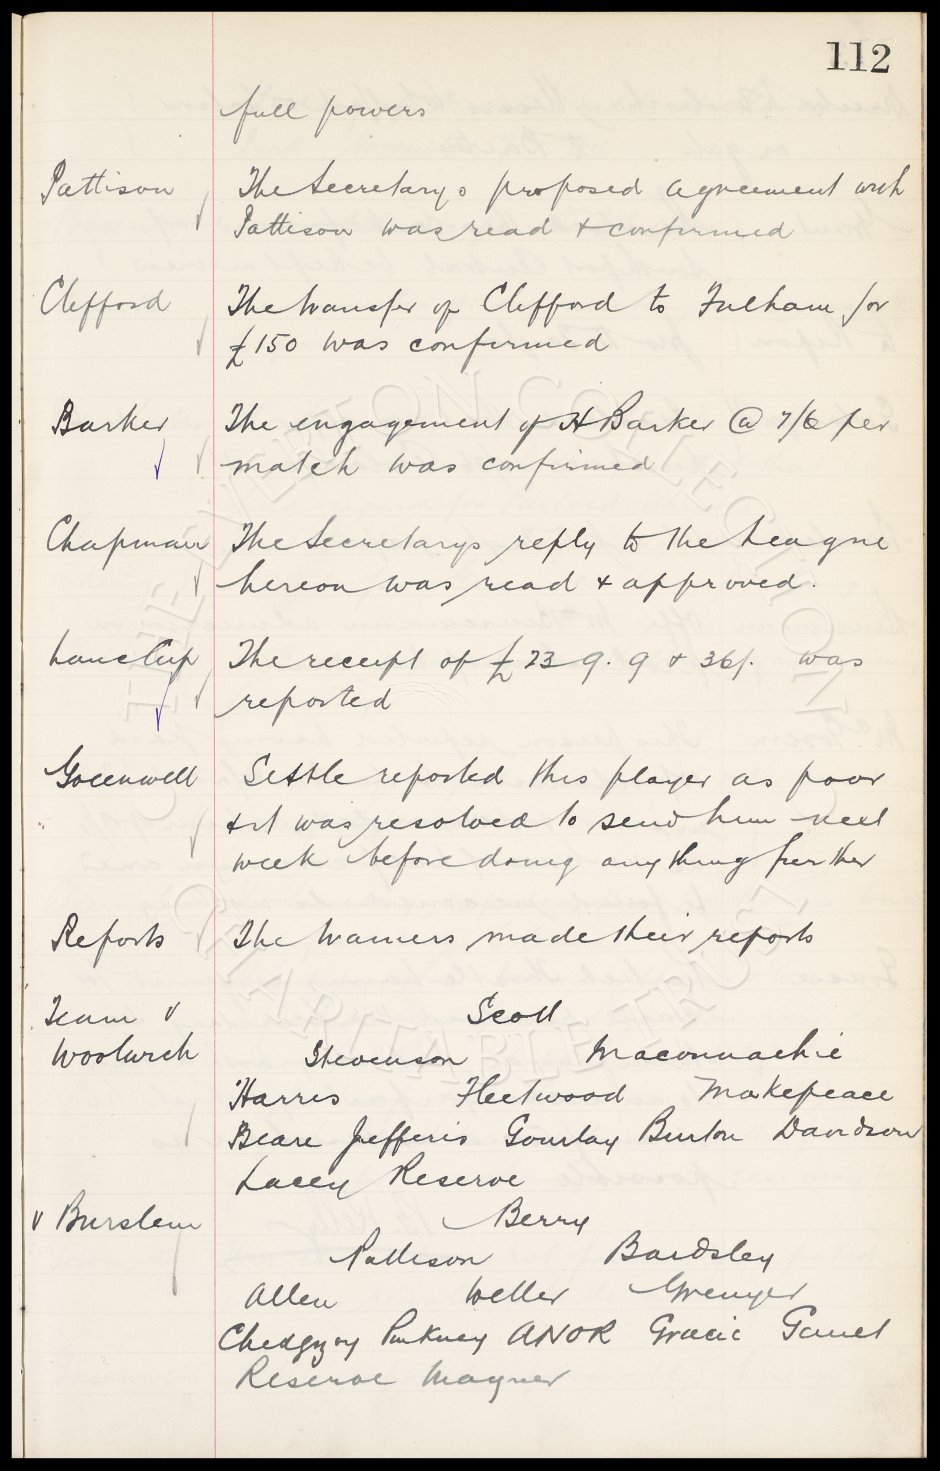 112
full powers
Pattison The Secretarys proposed agreement with
Pattison was read & confirmed
Clifford The transfer of Clifford to Fulham for
£150 was confirmed
Barker The engagement of H Barker @ 7/6 per
match was confirmed
Chapman The Secretarys reply to the League
hereon was read & approved.
Lancs Cup The receipt of £23 9. 9 & 36/. was
reported
Greenwell Settle reported this player as poor
& it was resolved to send him next
week before doing anything further
Reports The trainers made their reports
Team v Scott
Woolwich Stevenson Maconnachie
Harris Fleetwood Makepeace
Beare Jefferis Gourlay Burton Davidson
Lacey Reserve
v Burslem Berry
Pattison Bardsley
Allen Weller Grenyer
Chedgzoy Pinkney ANOR Gracie Gault
Reserve Magner
THE EVERTON COLLECTION
CHARITABLE TRUST